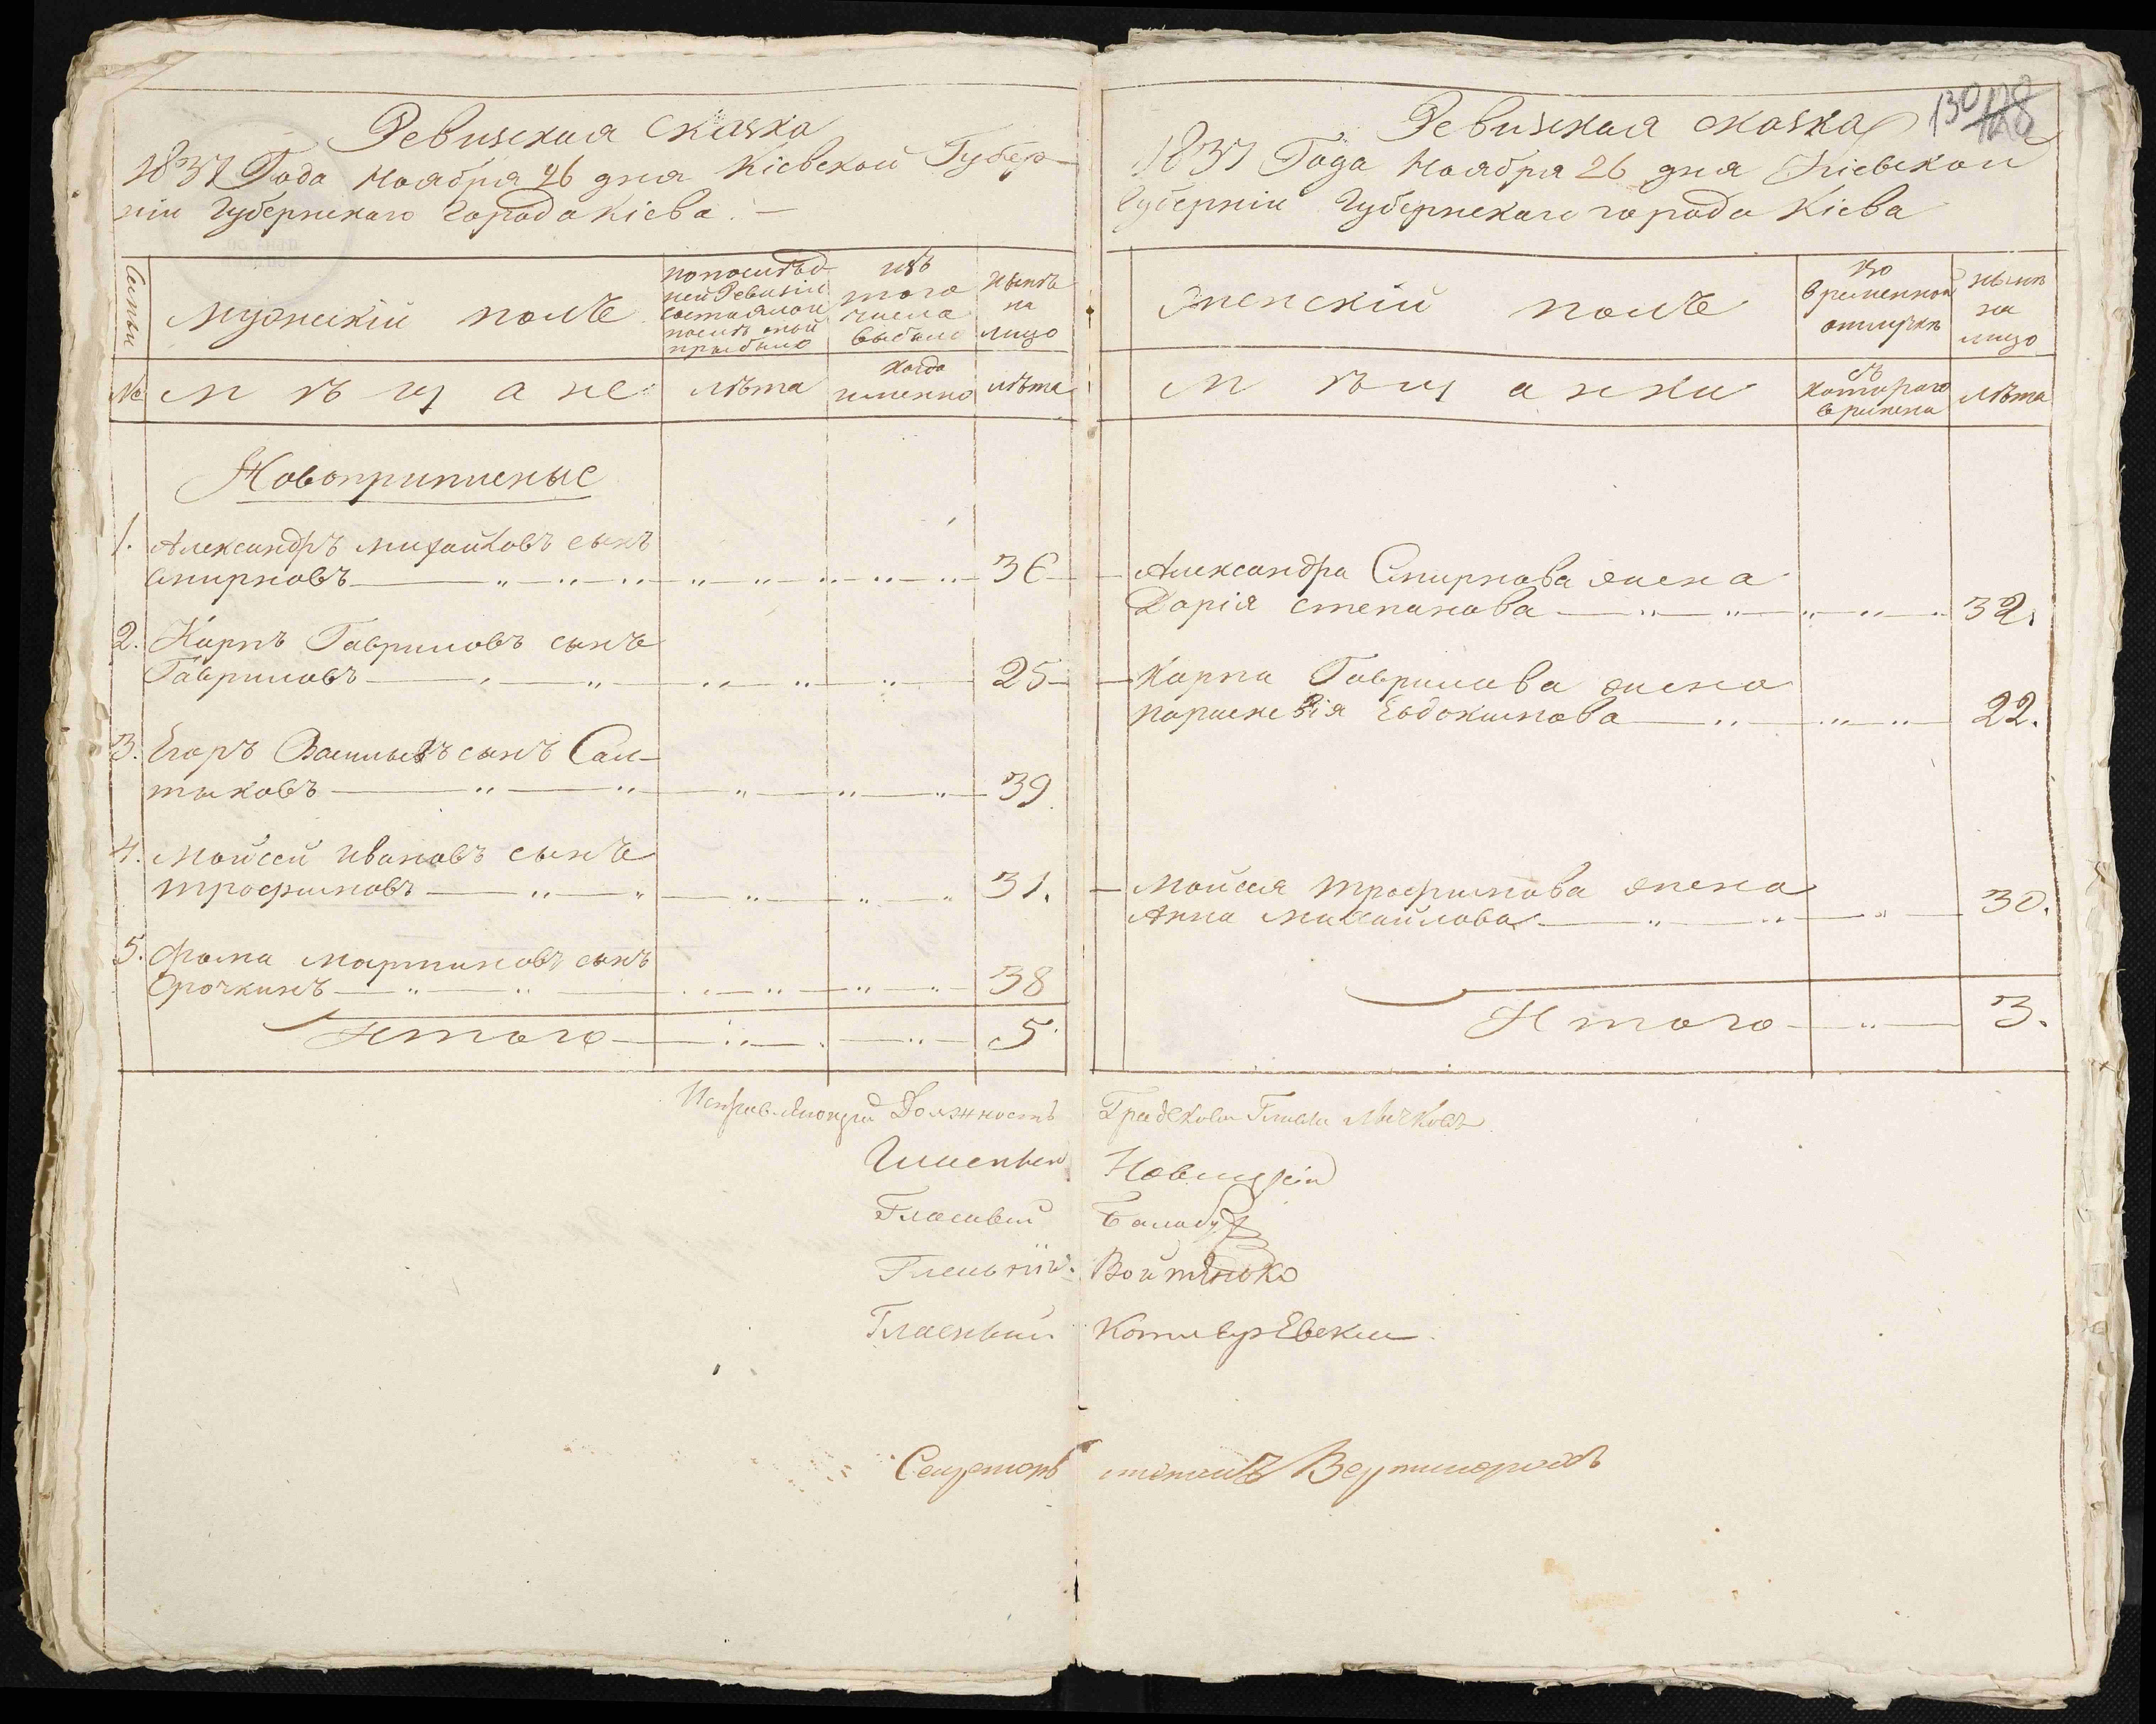 Ревизская сказка
1837 Года Ноября 26 дня Кіевской Губер-
ніи Губернскаго Города Кіева. —
Семьи
мужескій полъ
по послѣд
ней Ревизіи
состоялои
послѣ оной
прибыло
изъ
того
числа
выбыло
нынѣ
на
лицо
№
мѣщане
лѣта
когда
именно
лѣта
Новоприписные
1. Александръ Михайловъ сынъ
Смирновъ 36
2. Карпъ Гавриловъ сынъ
Гавриловъ 25
3. Егоръ Васильевъ сынъ Сал-
тыковъ 39
4. Мойсей Ивановъ сынъ
Трофимовъ 31.
5. Фома Мартиновъ сынъ
Срочкинъ 38
Итого 5
130 128
Ревизская сказка
1837 Года Ноября 26 дня Кіевской
Губерніи Губернскаго города Кіева
женскій полъ
во
временной
отлучкѣ
нынѣ
на
лицо
мѣщанки
съ
котораго
времени
лѣта
Александра Смирнова жена
Дарія Степанова 32.
Карпа Гаврилова жена
Параскевія Евдокимова 22.
Мойсея Трофимова жена
Анна Михайлова 30.
Итого 3.
Исправляющій Должность Градской Главы Лычковъ
Новицкій
Гласный Балабуха
Гласный Войтенько
Гласный Котляревскій
Секретарь